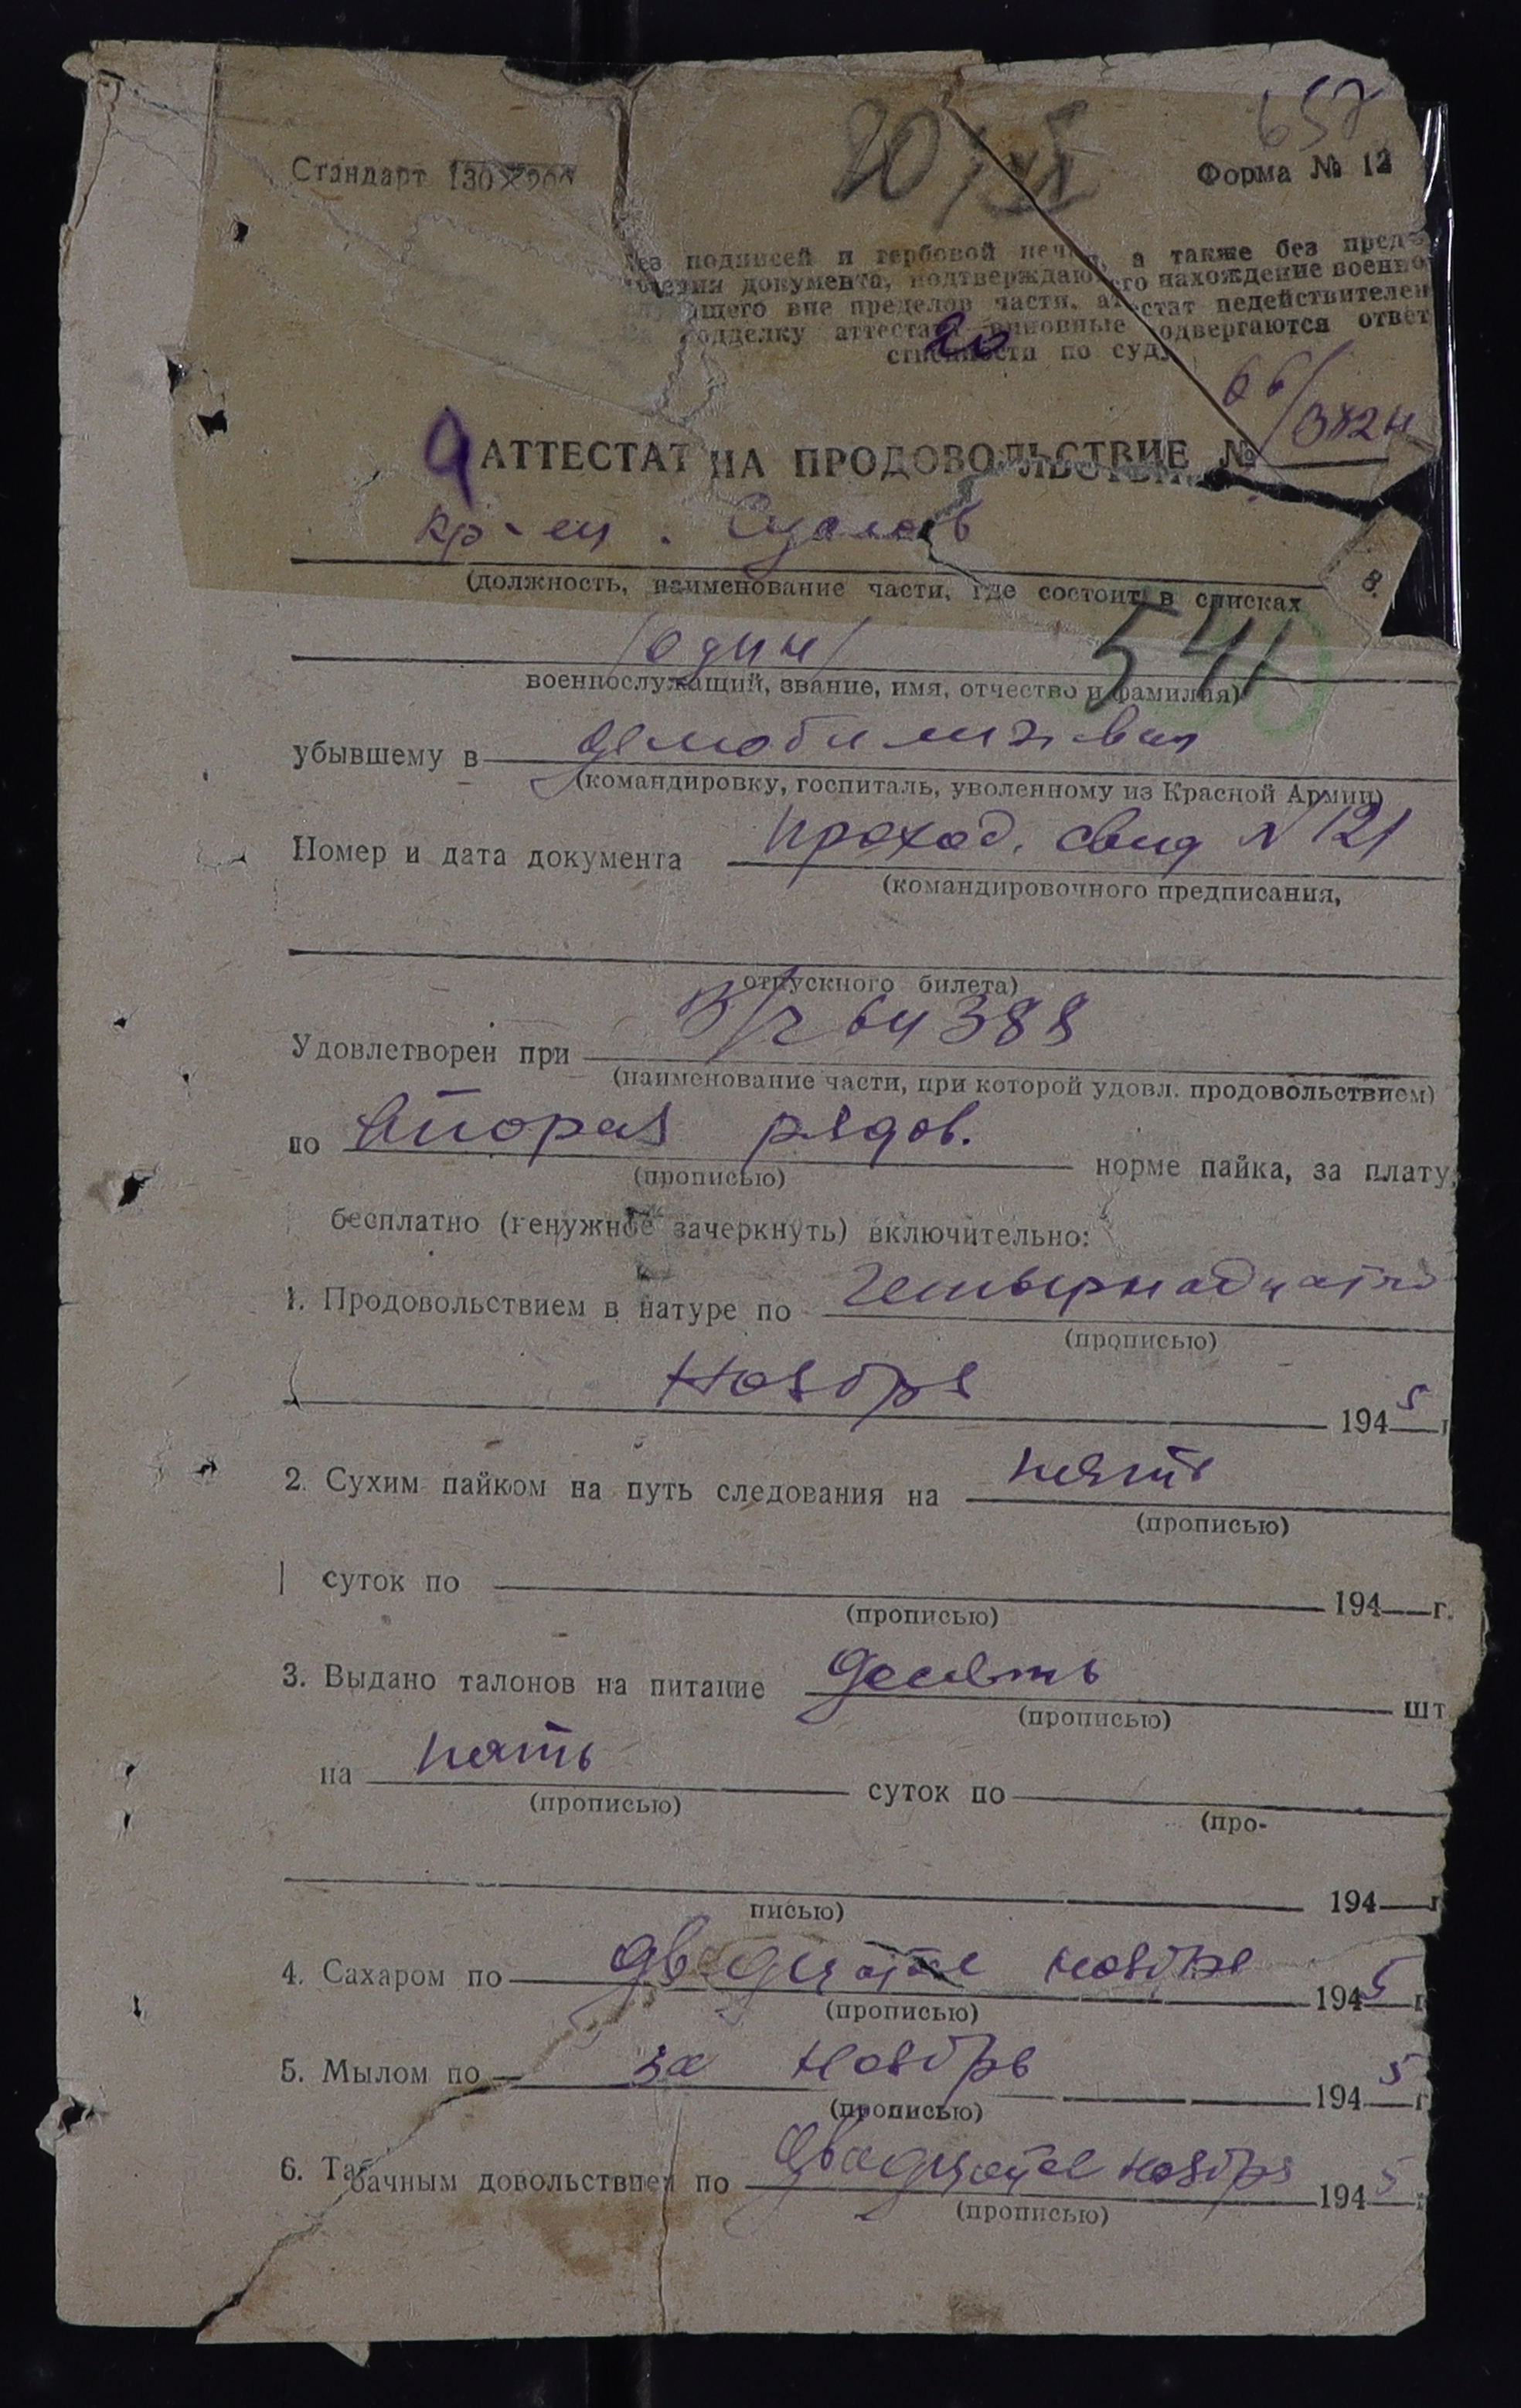 657
20/XI
Стандарт 130×200
Форма № 12
без подписей и гербовой печ , а также без пред-
документа, подтверждаю его нахождение военно
щего вне пределов части, аттестат недействителен
подделку аттестата виновные подвергаются ответ
ственности по суду
20
66/
АТТЕСТАТ НА ПРОДОВОЛЬСТВИЕ №
кр-ец.
(должность, наименование части, где состоит в списках
в.
/один/
541
военнослужащий, звание, имя, отчество и фамилия)
убывшему в демобилизван
(командировку, госпиталь, уволенному из Красной Армии)
Номер и дата документа проход. свид N 121
(командировочного предписания,
отпускного билета)
Удовлетворен при В/ч 64388
(наименование части, при которой удовл. продовольствием)
по вторая рядов. норме пайка, за плату,
(прописью)
бесплатно (ненужное зачеркнуть) включительно:
1. Продовольствием в натуре по четырнадцатое
(прописью)
ноября 1945 г
2. Сухим пайком на путь следования на пять
(прописью)
суток по 194 г.
(прописью)
3. Выдано талонов на питание десять шт
(прописью)
на пять суток по
(прописью)
(про-
194 г
писью)
4. Сахаром по двадцатое ноября 1945 г
(прописью)
5. Мылом по за ноябрь 1945 г
(прописью)
6. Табачным довольствием по двадцатое ноября 1945 г
(прописью)